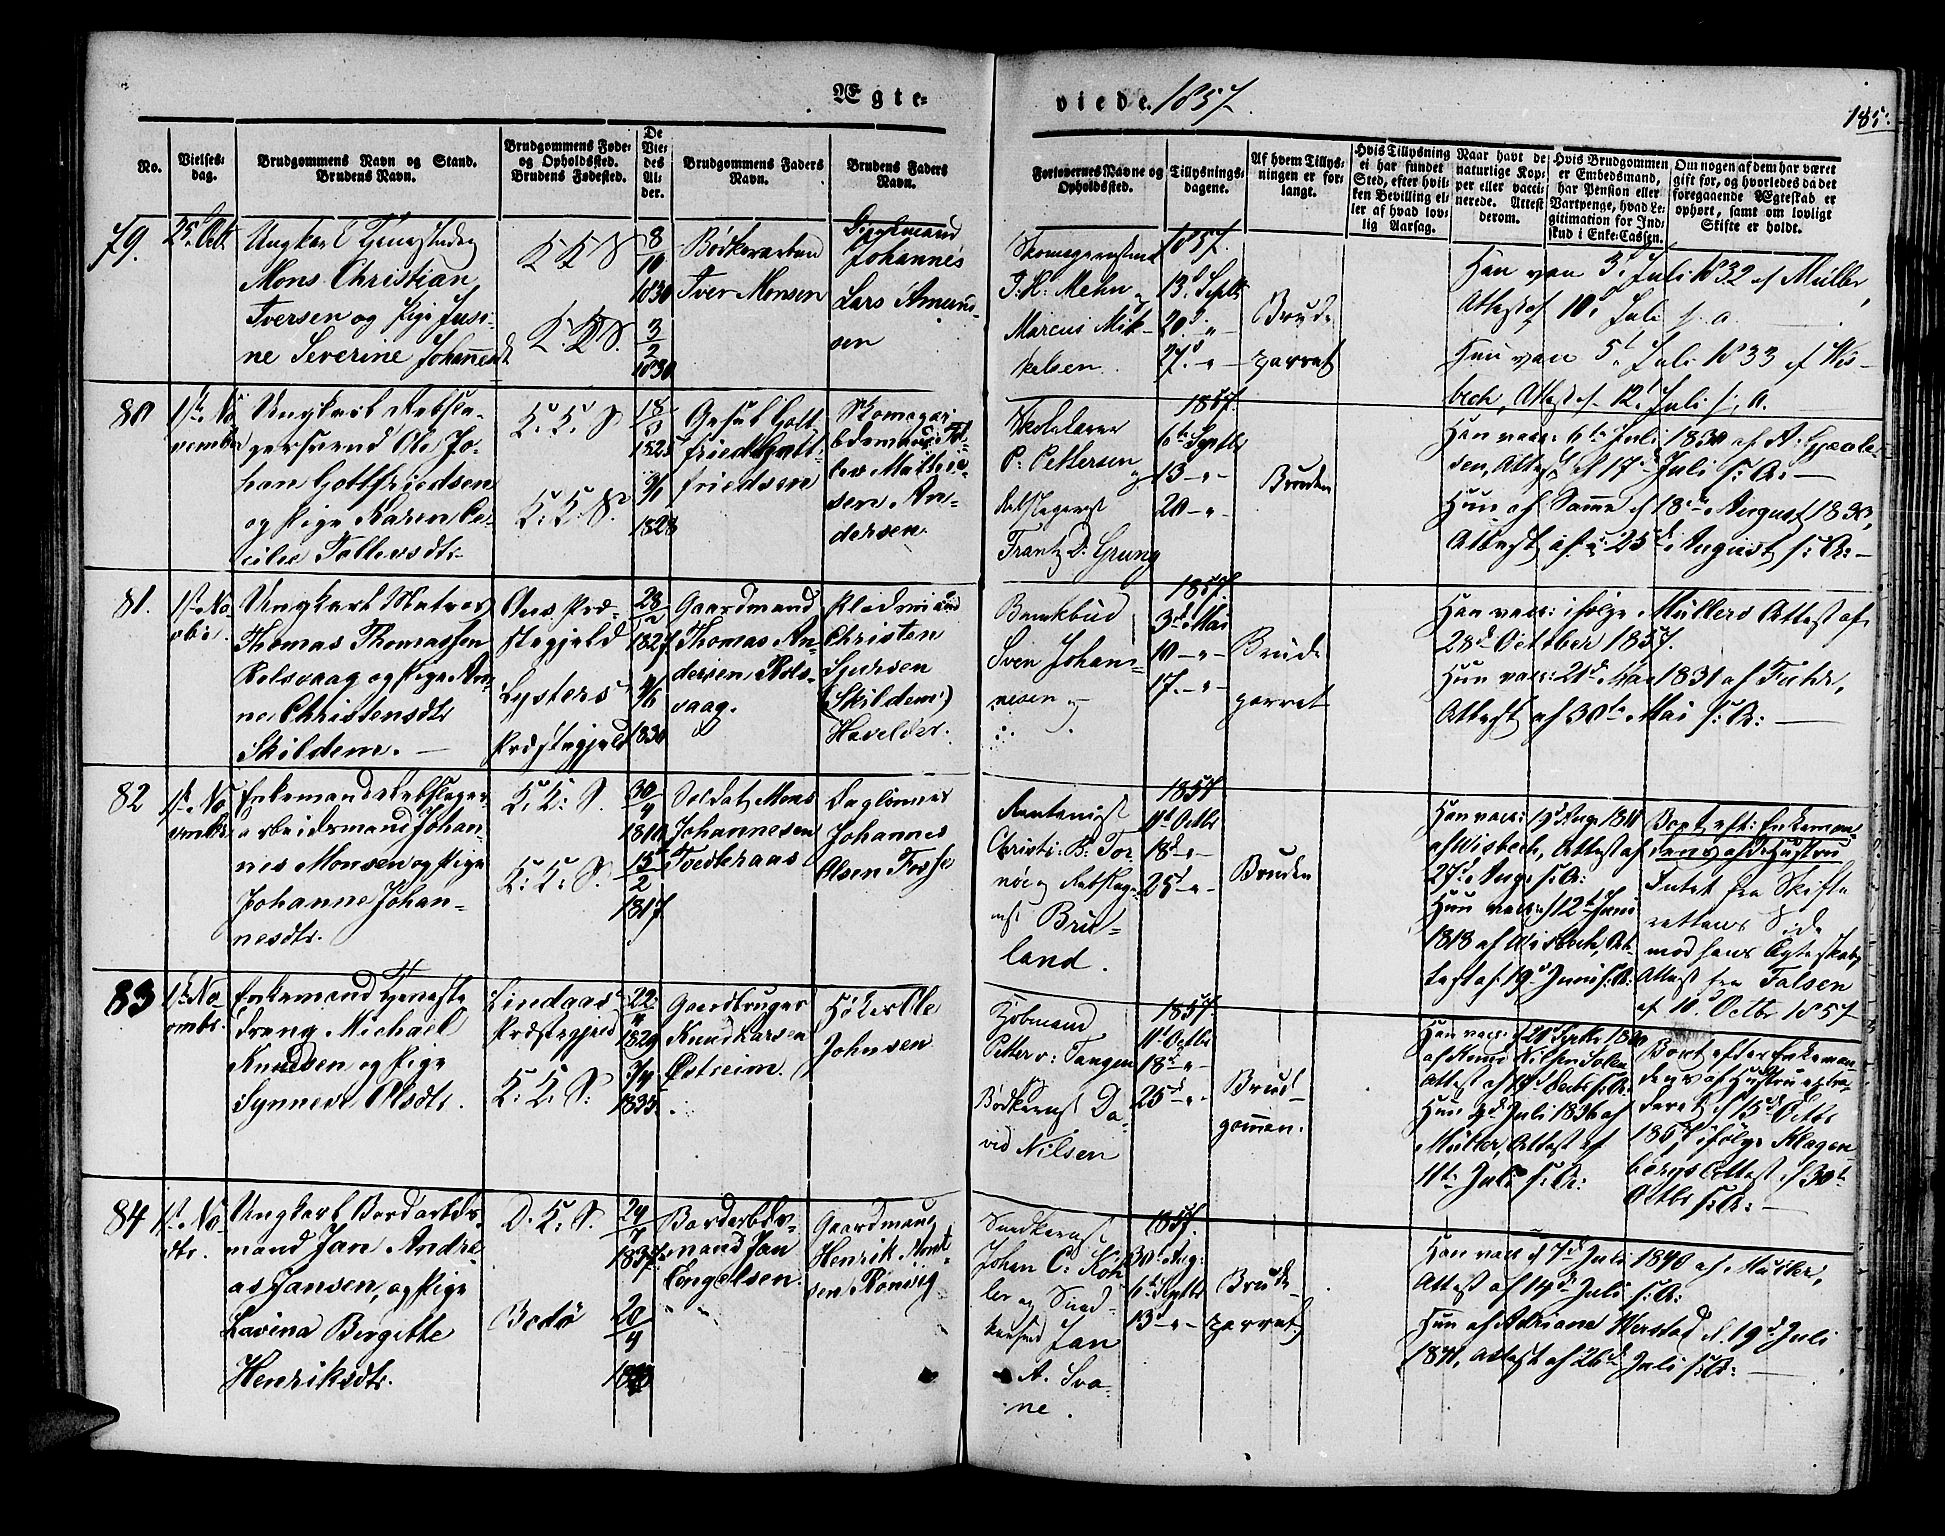 Ægte-
viede. 1857.
185.
No.
Vielses-
dag.
Brudgommens Navn og Stand.
Brudens Navn.
Brudgommens Føde-
og Opholdssted.
Brudens Fødested.
De
Vie-
des
Al-
der.
Brudgommens Faders
Navn.
Brudens Faders
Navn.
Forlovernes Navne og
Opholdssted.
Tillysnings-
dagene.
Af hvem Tillys-
ningen er for-
langt.
Hvis Tillysning
ei har fundet
Sted, efter hvil-
ken Bevilling el-
ler af hvad lov-
lig Aarsag.
Naar havt de
naturlige Kop-
per eller vacci-
nerede. Attest
derom.
Hvis Brudgommen
er Embedsmand,
har Pension eller
Vartpenge, hvad Le-
gitimation for Ind-
skud i Enke-Cassen.
Om nogen af dem har været
gift før, og hvorledes da det
foregaaende Ægteskab er
ophørt, samt om lovligt
Skifte er holdt.
79.
25d Oct.
Ungkarl Tjenestedreng
Mons Christian
Iversen og Pige Jusi-
ne Severine Johannesdt
K. K. S.
K. K. S.
8
10
1830
3
2
1830
Bødkersvend
Iver Monsen
Johannes
Lars Amun-
sen
Skomagermester
J. H. Mehn
Marcus Mik-
kelsen.
1857.
13d Septbr
20d "
27. "
Brude-
parret
Han vac. 3d Juli 1832 af Müller,
Attest af 10d Juli s. a.
Hun vac. 5t Juli 1833 af Wis-
bech, Attest. 12. Juli s. A.
80
1ste No-
vember
Ungkarl Rebsla-
gersvend Ole Jo-
han Gottfriedsen
og Pige Karen Ce-
cilie Tollevsdtr.
K. K. S.
K. K. S.
18
1825
9/1
1828
Gesel Gott-
fried Gott-
friedsen
Skomager
Mathie-
sen An-
dersen.
Skolelærer
P. Pettersen
Rebslagermst
Frantz D. Grung
1857.
6te Septbr
13 - " -
20 - "
Bruden
Han vacc: 6te Juli 1830 af A. Gjæde-
sen, Attest d 17d Juli s: A: —
Hun af Samme d 18de August 1830,
Attest af d 25d August s: A: —
81.
1ste No-
vbr.
Ungkarl Matros
Thomas Thomassen
Rolsvaag og Pige An-
ne Christensdtr
Skildem. —
Aus Præ-
stegjeld
Lysters
Præstegjeld
28
1827
4/6
1830
Gaardmand
Thomas An-
dersen Rols-
vaag.
Pladsmand
Christen
Sjursen
(Skildem)
Havelder.
Bankbud
Sven Johan-
nesen
1857.
3d Mai
10 - " -
17. - " -
Brude
parret
Han vacc: ifølge Müllers Attest af
28d October 1857.
Hun vacc: 21d Mai 1831 af Fuhr,
Attest af 30te Mai s: A: —
82
1ste No-
vember
Enkemand Rebslager-
arbeidsmand Johan-
nes Monsen og Pige
Johanne Johan-
nesdtr.
K. K. S.
K. K. S.
30
4
1810
15
2
1817
Soldat Mons
Johannesen
Toedteraas
Daglønner
Johannes
Olsen Fosse
Christi: B. Tor-
nøe og Rebslager-
mst Bru-
land.
1857
11t Octbr
18d - " -
25d - " -
Bruden
Han vacc: 19d Aug. 1811
af Wisbech, Attest af
27d Aug. s. A:
Hun vacc: d 12t Juni
1818 af Wisbech, At-
test af 19d Juni s. A:
Bort eft: Enkeman-
den v. afd. Hustru
Intet fra Skifte
rettens Side
mod hans Ægteskab,
Attest fra Falsen
af 10d Octbr 1857
83
1ste No-
vembr.
Enkemand Tjeneste
dreng Michael
Knudsen og Pige
Synneve Olsdtr.
Lindaas
Præstegjeld
K. K. S.
22
1829
3/4
1835
Gaardbruger
Knud Larsen
Østreim.
Høker Ole
Johnsen
Kjøbmand
Petter v: Tangen
Bødkermst Da-
vid Nilsen
1857
11t Octbr
18d - "
25d - "
Brud-
gommen.
Han vacc: 20d Septbr 1830
Hun 2d Juli 1836 af
Müller, Attest af
11te Juli s. A:
Bort efter Enkeman-
den v. af Hustru
15d Octbr
1857 ifølge Klagen-
bergs Attest d 30te
Octbr s. A: —
84
1ste No-
vbr.
Ungkarl Bordarbds-
mand Jan Andre
as Jansen, og Pige
Lavina Bergitte
Henriksdtr.
D. K. S.
Bodø
24
1837
20
4
Bordarbds-
mand Jan
Engelsen.
Gaardmand
Henrik Mort-
sen Rønvig
Snedkermst
Johan C: Køh-
ler og Sned-
kersvend Jan
A. Sva-
ne.
1857
30te Aug:
6te Septbr
13d - " -
Brude-
parret
Han vacc d 7d Juli 1840 af Müller,
Attest af 14d Juli s. A:
Hun af Adriane Werstad d. 19d Juli
1841, Attest af 26d Juli s. A: —